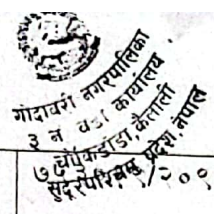 गोदावरी नगरपालिका
३ न वडा कार्यालय
कैलाली
सुदूरपश्चिम प्रदेश, नेपाल